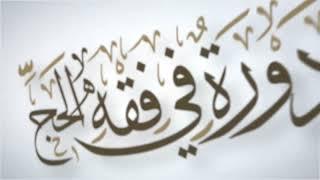 دَورَةٌ فِي فِقهِ الحَجِّ